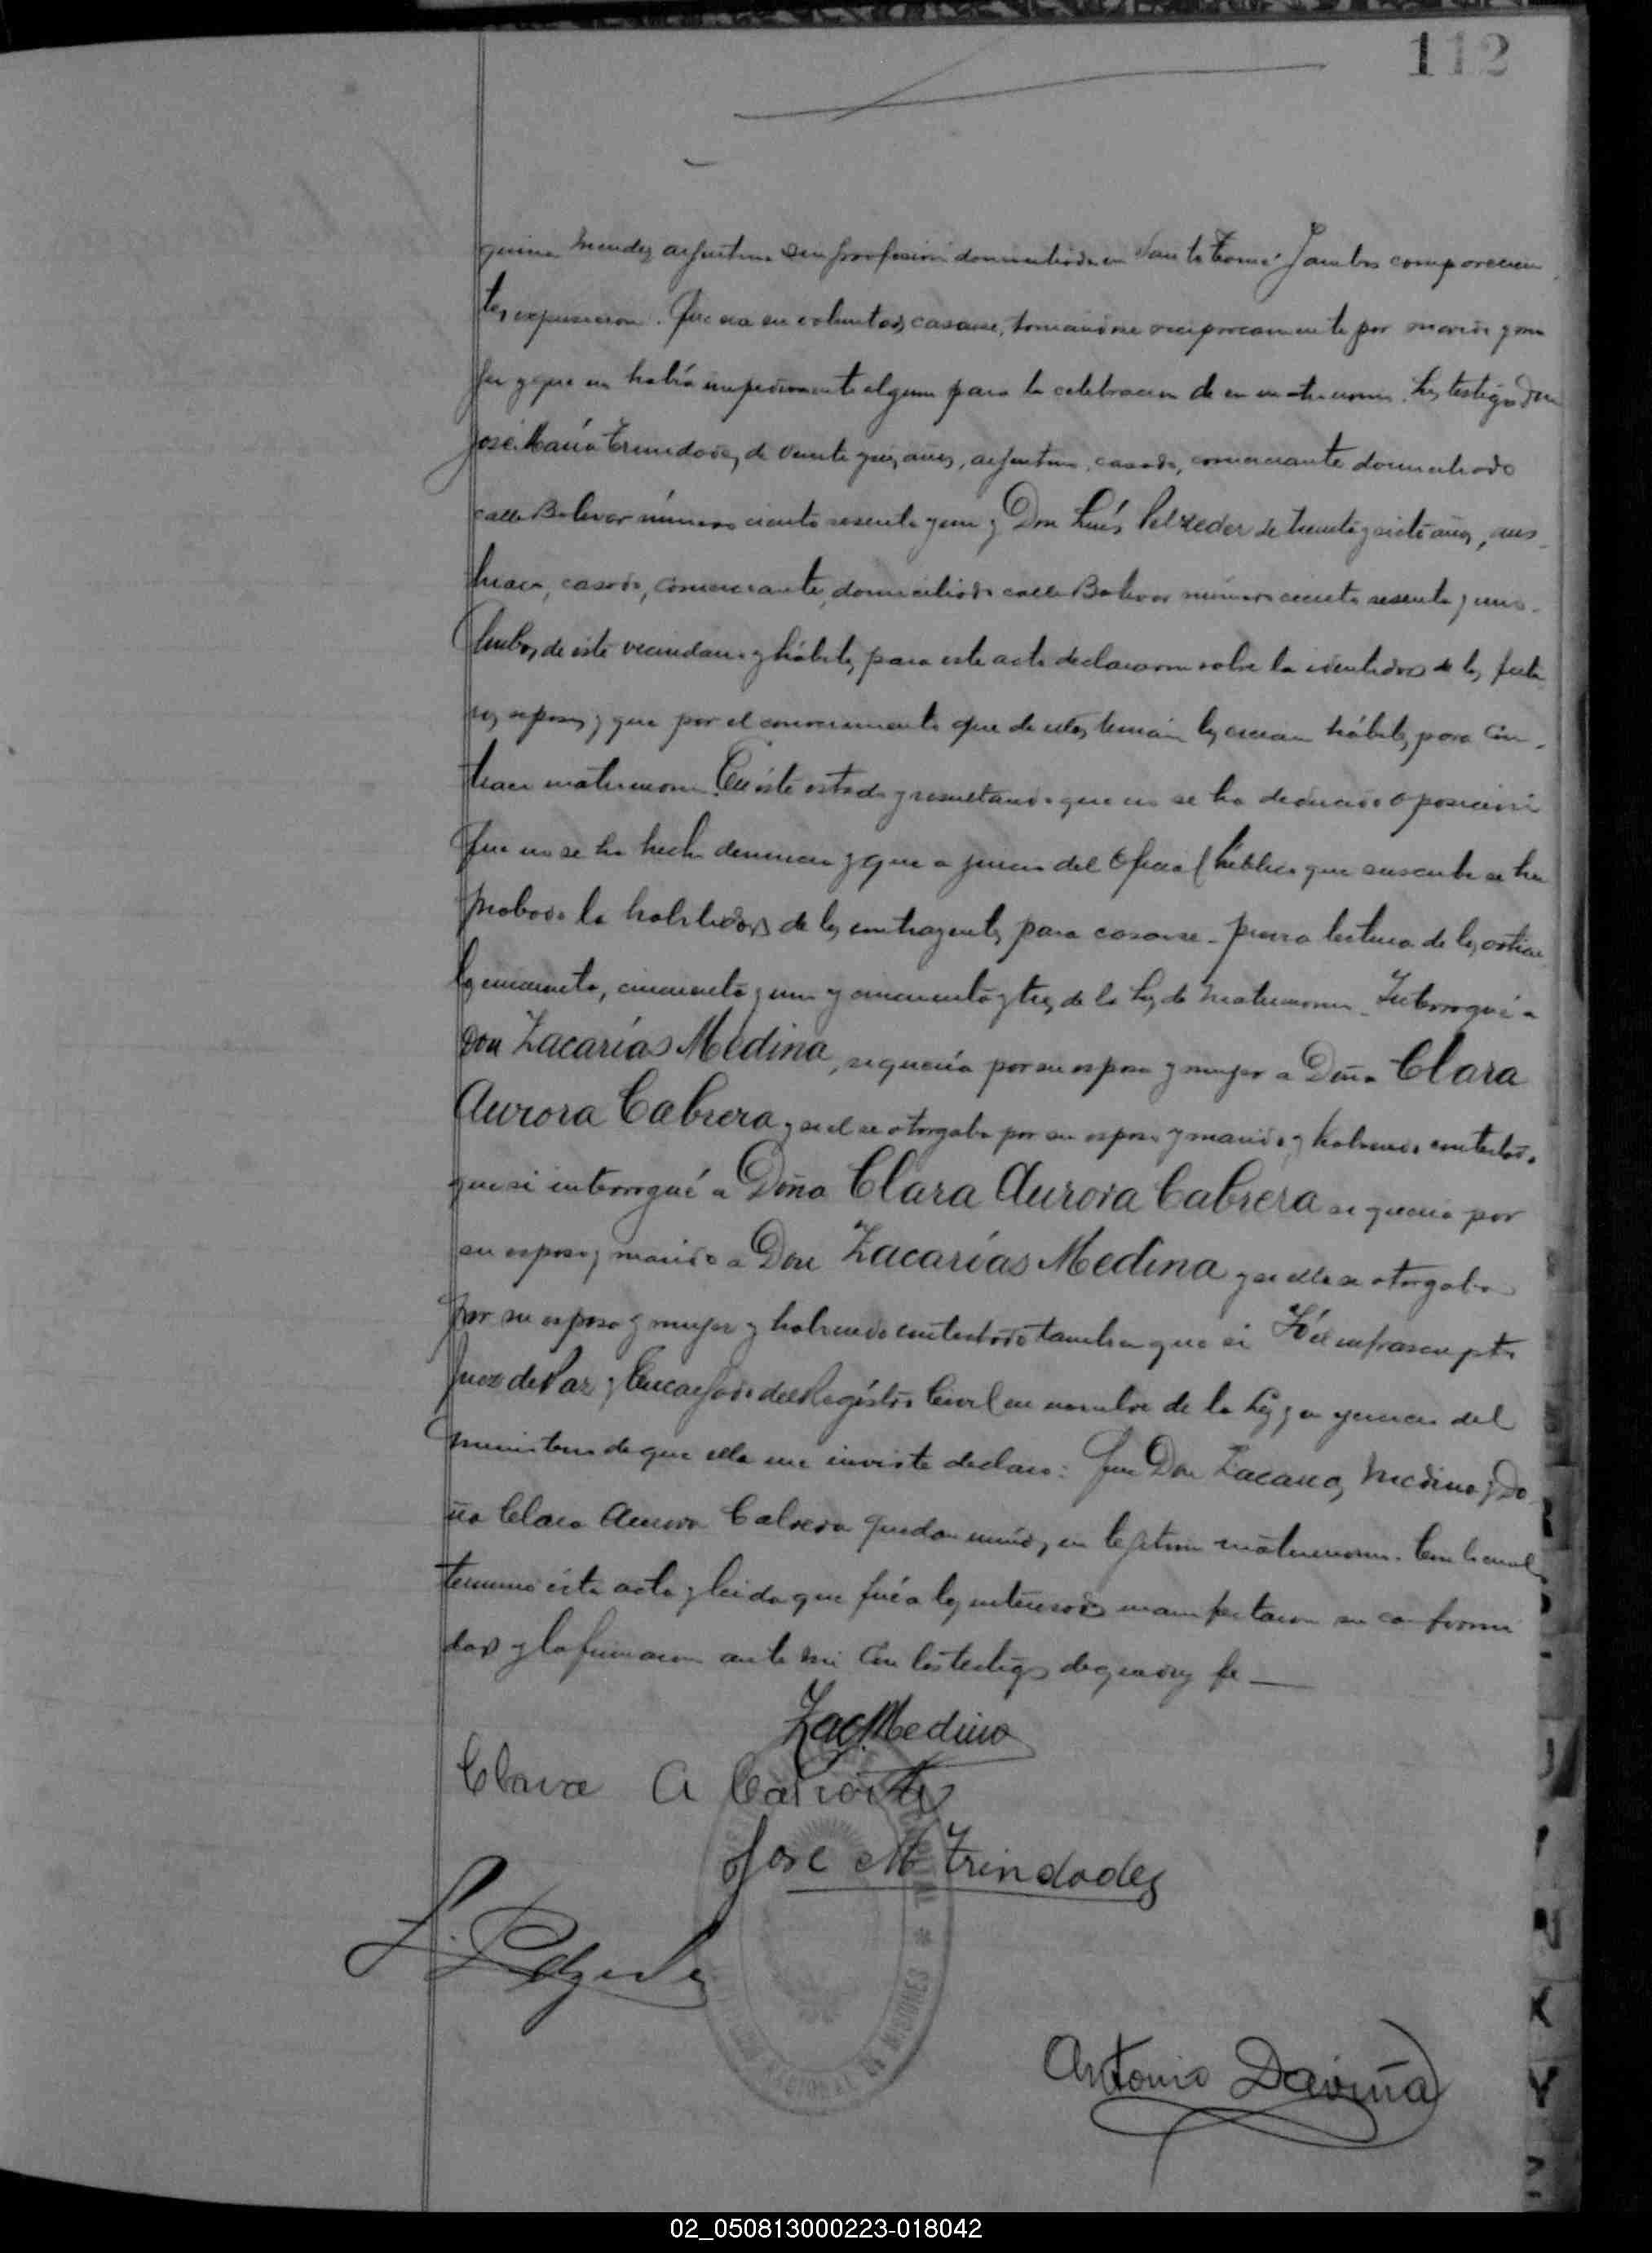 112
quina Mendez argentina sin profesion domiciliada en Santo Tomé y ambos comparecien
tes expusieron. Que era su voluntad casarse, tomandose reciprocamente por marido y mu
jer y que no había impedimento alguno para la celebracion de su matrimonio. Los testigos Don
José María Trindades, de veinte y seis años, argentino, casado, comerciante domiciliado
calle Bolivar número ciento sesenta y uno y Don Luís Pelzeder de treinta y siete años, aus
triaco, casado, comerciante, domiciliado calle Bolivar número ciento sesenta y uno.
Ambos de este vecindario y hábiles para este acto declararon sobre la identidad de los futu
ros esposos y que por el conocimiento que de ellos tenían los creian hábiles para con
traer matrimonio. En éste estado y resultando que no se ha deducido oposición
Que no se ha hecho denuncia y que a juicio del Oficial Público que suscribe se ha
probado la habilidad de los contrayentes para casarse. previa lectura de los artícu
los cincuenta, cincuenta y uno y cincuenta y tres de la Ley de Matrimonio. Interrogué a
Don Zacarías Medina, si queria por su esposa y mujer a Doña Clara
Aurora Cabrera y si el se otorgaba por su esposo y marido y habiendo contestado
que si interrogué a Doña Clara Aurora Cabrera si queria por
su esposo y marido a Don Zacarías Medina y si ella se otorgaba
por su esposa y mujer y habiendo contestado tambien que si Yó el infrascripto
Juez de Paz y Encargado del Registro Civil en nombre de la Ley y en ejercicio del
ministerio de que ella me inviste declaro: Que Don Zacarias Medina y Do
ña Clara Aurora Cabrera quedan unidos en legitimo matrimonio. Con lo cual
termino ésta acta y leida que fué a los interesados manifestaron su conformi
dad y la firmaron ante mi con los testigos de que doy fe
Zac. Medina
Clara A
José M Trindades
L. Pelzeder
NACIONAL DE MISIONES
Antonio Daviña
02_050813000223-018042